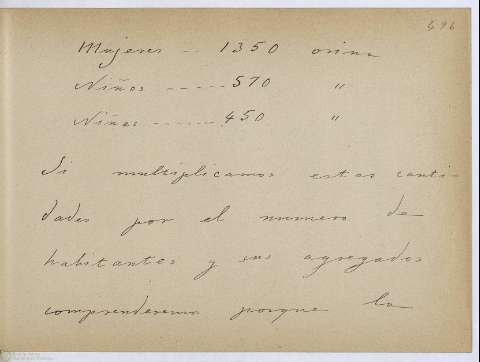 496
Mujeres -- 1350 orina
Niños ----- 570 "
Niñas ------ 450 "
Si multiplicamos estas canti-
dades por el numero de
habitantes y sus agregados
comprenderemos porque la